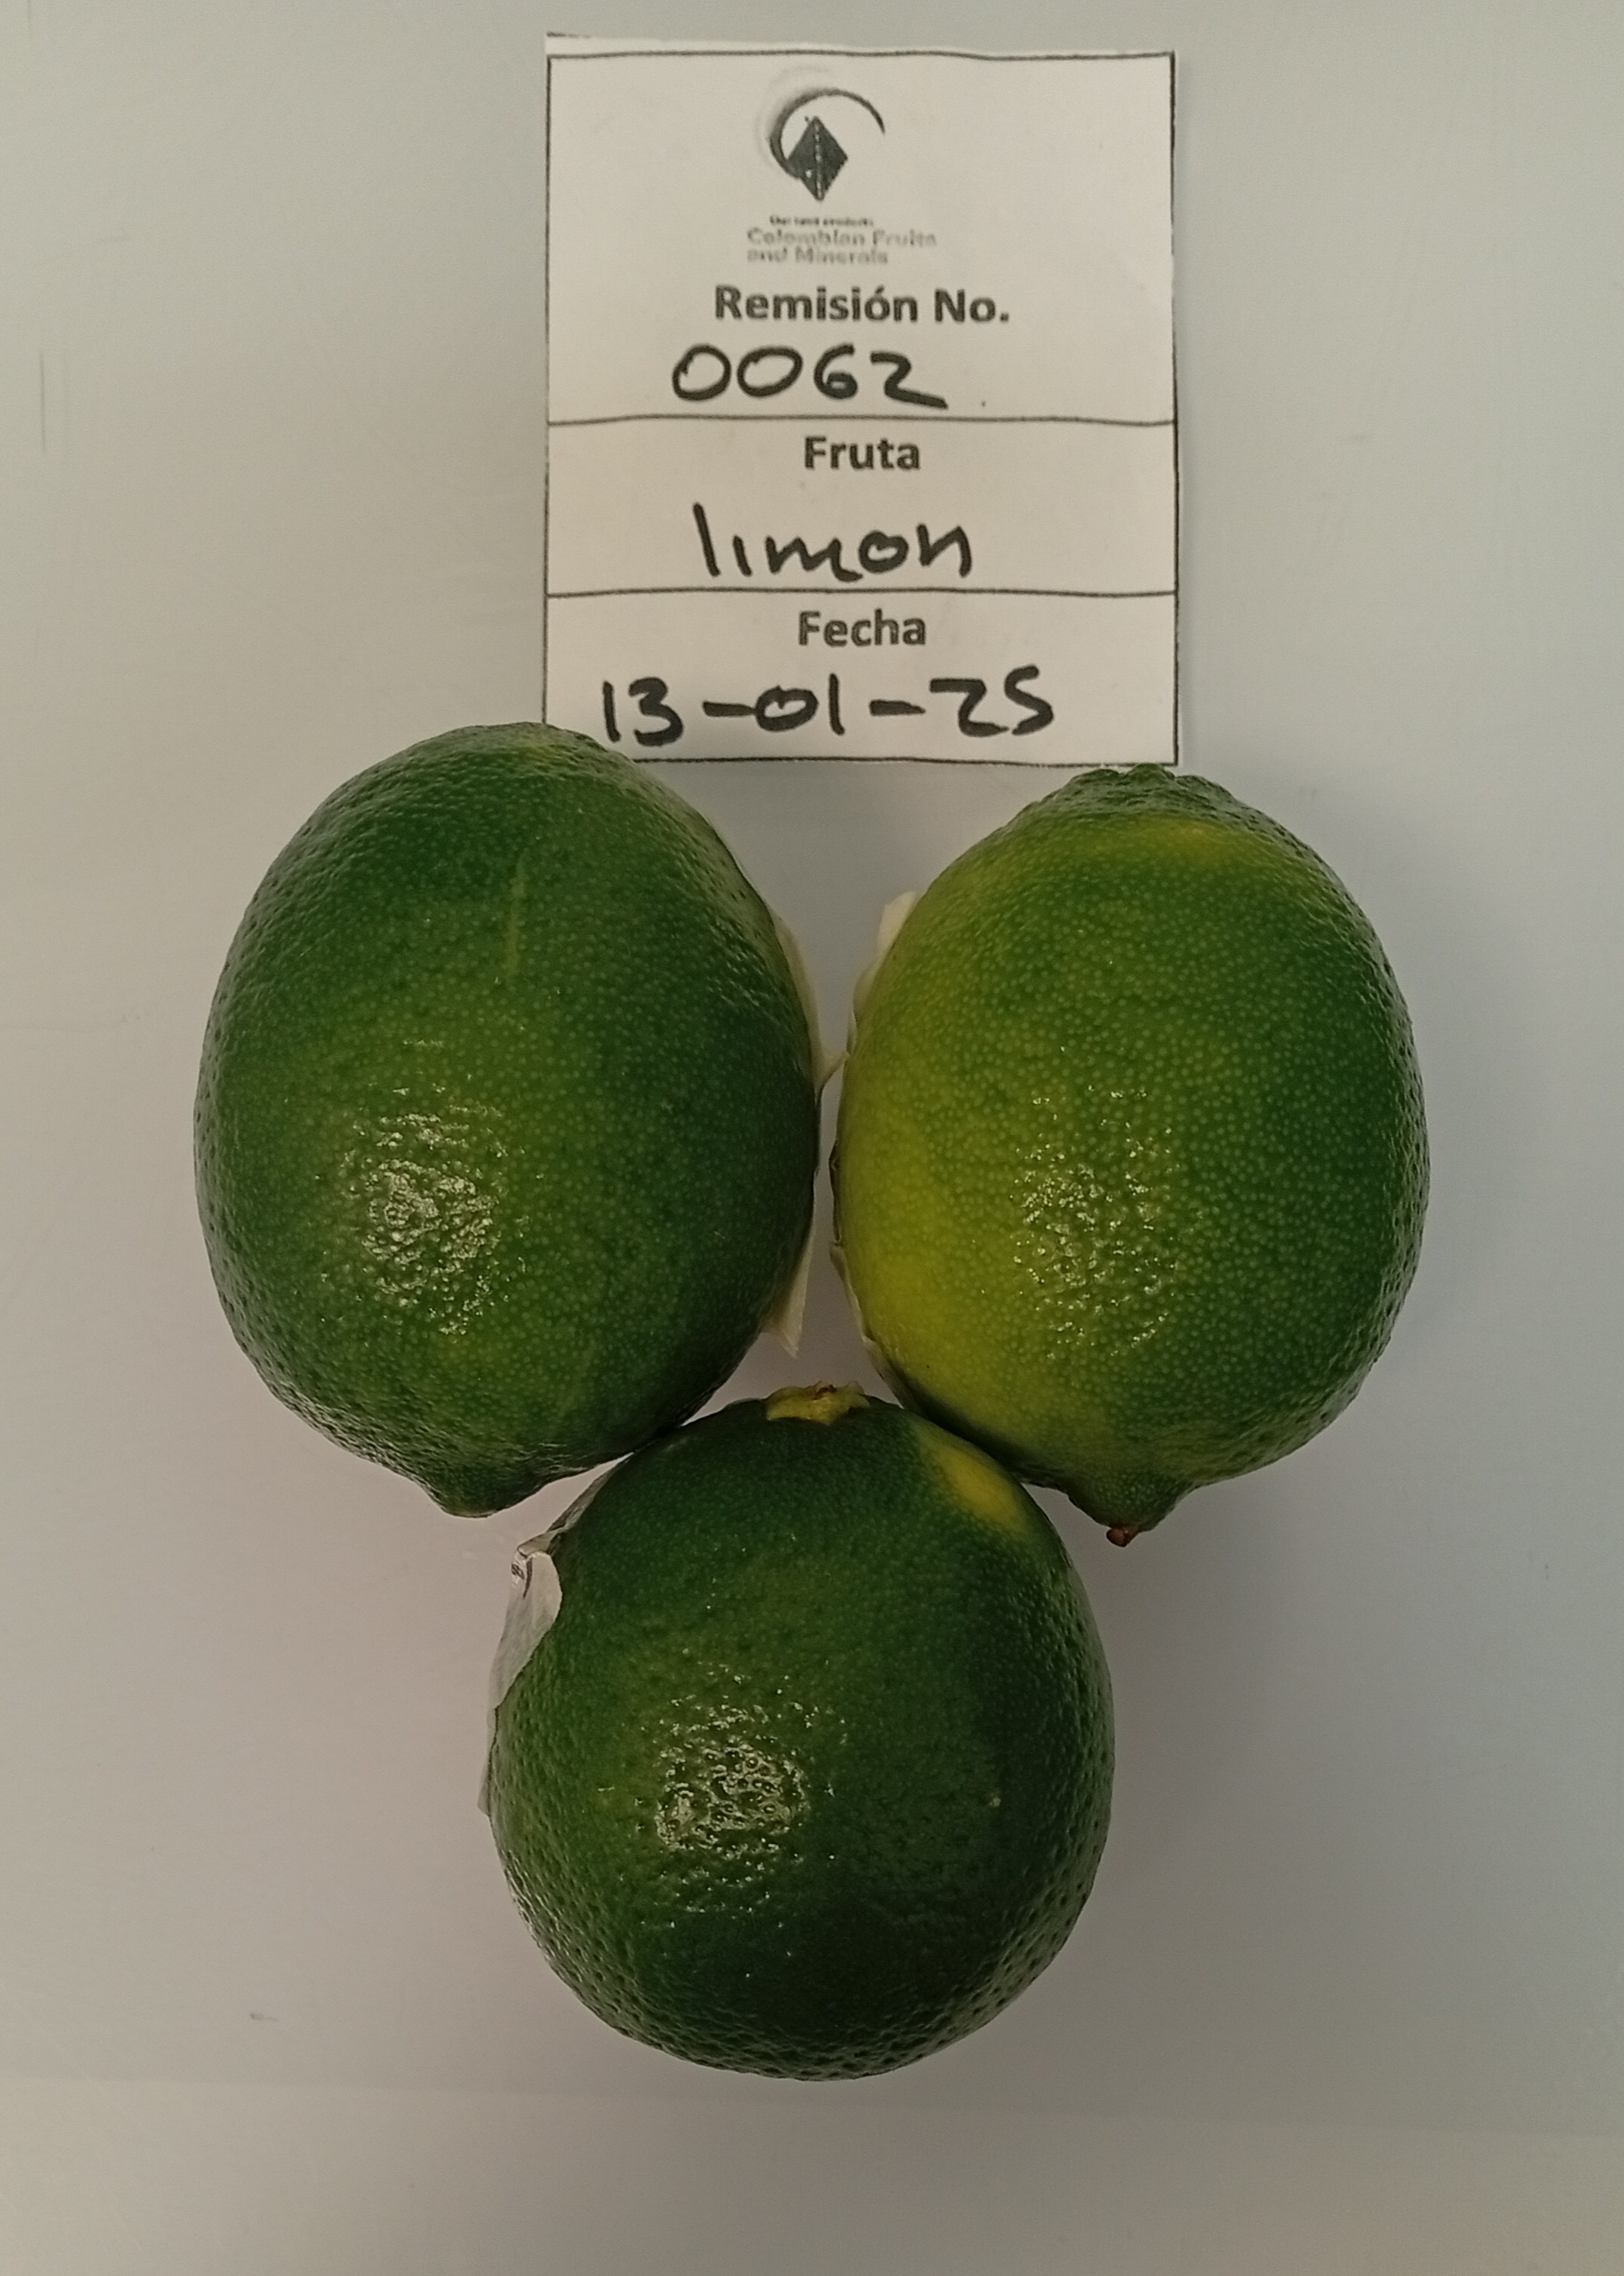 Our land products
Colombian Fruits
and Minerals
Remisión No.
0062
Fruta
limon
Fecha
13-01-25